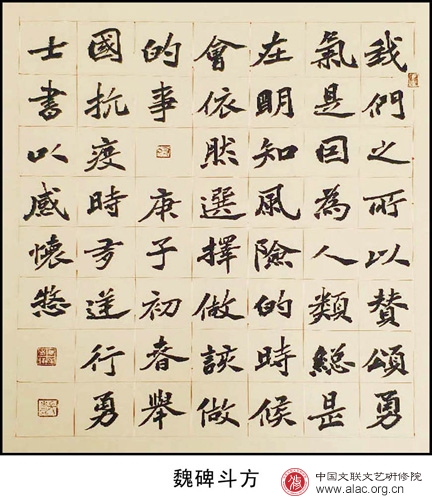 我們之所以贊頌勇
氣是因為人類總是
在明知風險的時候
會依然選擇做該做
的事 庚子初春舉
國抗疫時多逆行勇
士書以感懷
魏碑斗方
中国文联文艺研修院
www.alac.org.cn